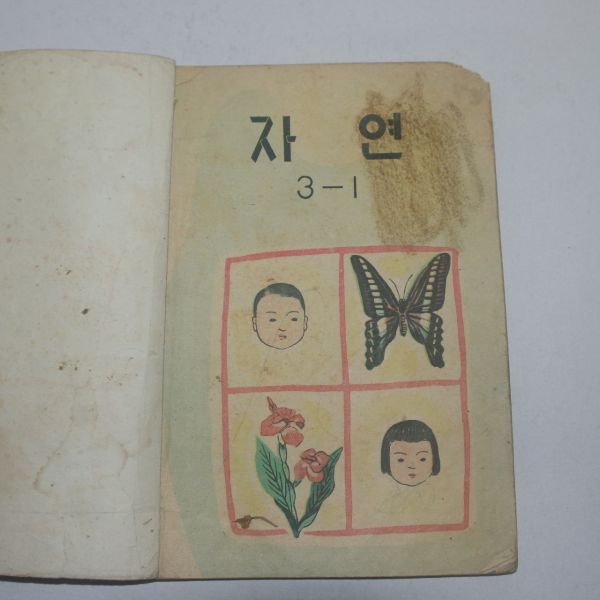 자 연
3-1